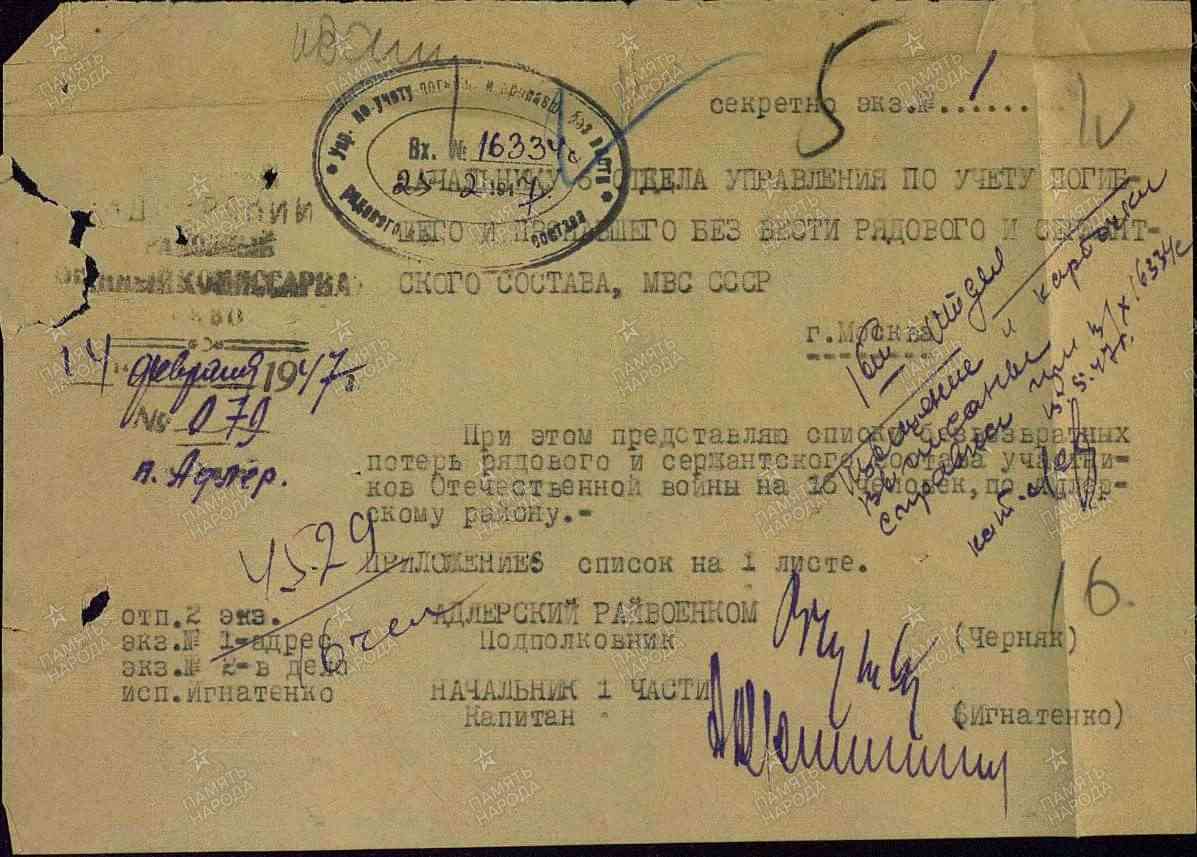 секретно экз.№ 1......
5
Упр. по учету погибш. и пропавш. без вести
рядового состава
Вх. № 16334с
25 2 1947.
НАЧАЛЬНИКУ 6 ОТДЕЛА УПРАВЛЕНИЯ ПО УЧЕТУ ПОГИБ-
ШЕГО И ПРОПАВШЕГО БЕЗ ВЕСТИ РЯДОВОГО И СЕРЖАНТ-
СКОГО СОСТАВА, МВС СССР
г.Москва
РАЙОННЫЙ
ВОЕННЫЙ КОМИССАРИА
14 февраля 1947 г.
№ 079
п. Адлер.
При этом представляю список безвозвратных
потерь рядового и сержантского состава участни-
ков Отечественной войны на 16 человек, по Адлер-
скому району.-
ПРИЛОЖЕНИЕ6 список на 1 листе.
отдел
и карточки
выписаны
16334с
15.5.47г.
4529
6 чел
16.
отп.2 экз.
экз.№ 1-адрес
экз.№ 2-в дело
исп.Игнатенко
АДЛЕРСКИЙ РАЙВОЕНКОМ
Подполковник
(Черняк)
НАЧАЛЬНИК 1 ЧАСТИ
Капитан
(Игнатенко)
ПАМЯТЬ НАРОДА